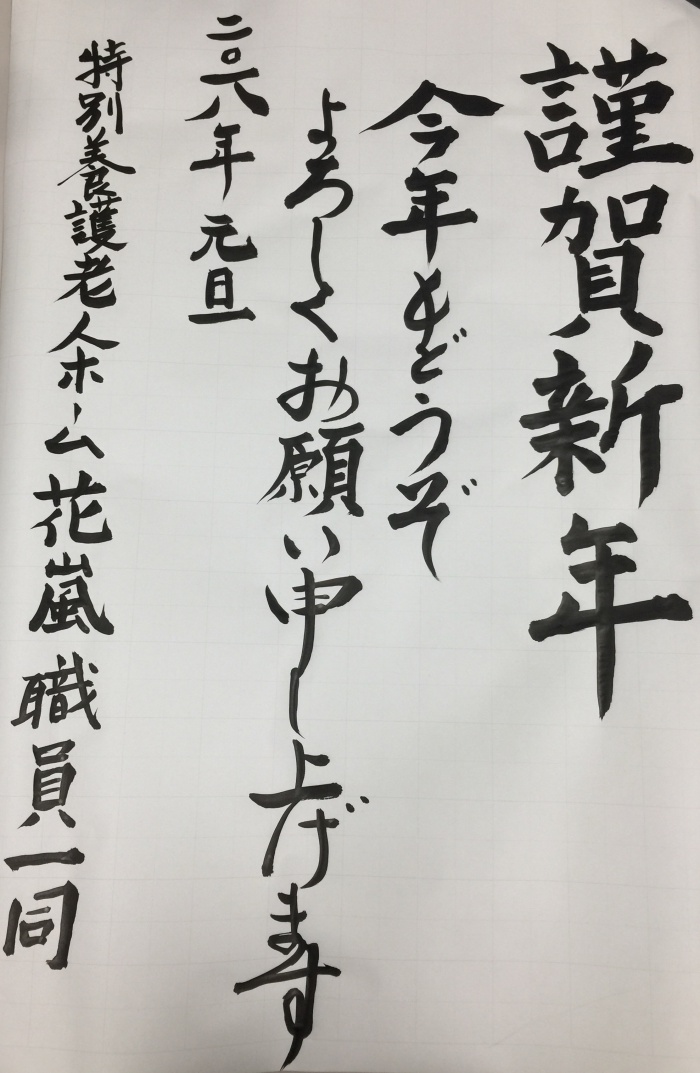 謹賀新年
今年もどうぞ
よろしくお願い申し上げます
二〇一八年 元旦
特別養護老人ホーム花嵐 職員一同